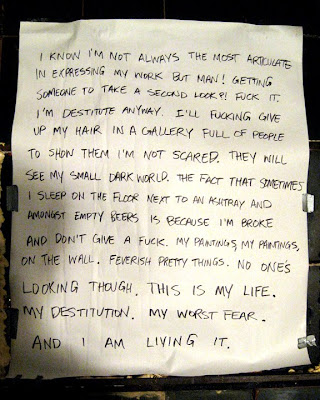 I KNOW I'M NOT ALWAYS THE MOST ARTICULATE
IN EXPRESSING MY WORK BUT MAN! GETTING
SOMEONE TO TAKE A SECOND LOOK?! FUCK IT.
I'M DESTITUTE ANYWAY. I'LL FUCKING GIVE
UP MY HAIR IN A GALLERY FULL OF PEOPLE
TO SHOW THEM I'M NOT SCARED. THEY WILL
SEE MY SMALL DARK WORLD. THE FACT THAT SOMETIMES
I SLEEP ON THE FLOOR NEXT TO AN ASHTRAY AND
AMONGST EMPTY BEERS IS BECAUSE I'M BROKE
AND DON'T GIVE A FUCK. MY PAINTINGS, MY PAINTINGS,
ON THE WALL. FEVERISH PRETTY THINGS. NO ONE'S
LOOKING THOUGH. THIS IS MY LIFE.
MY DESTITUTION. MY WORST FEAR.
AND I AM LIVING IT.